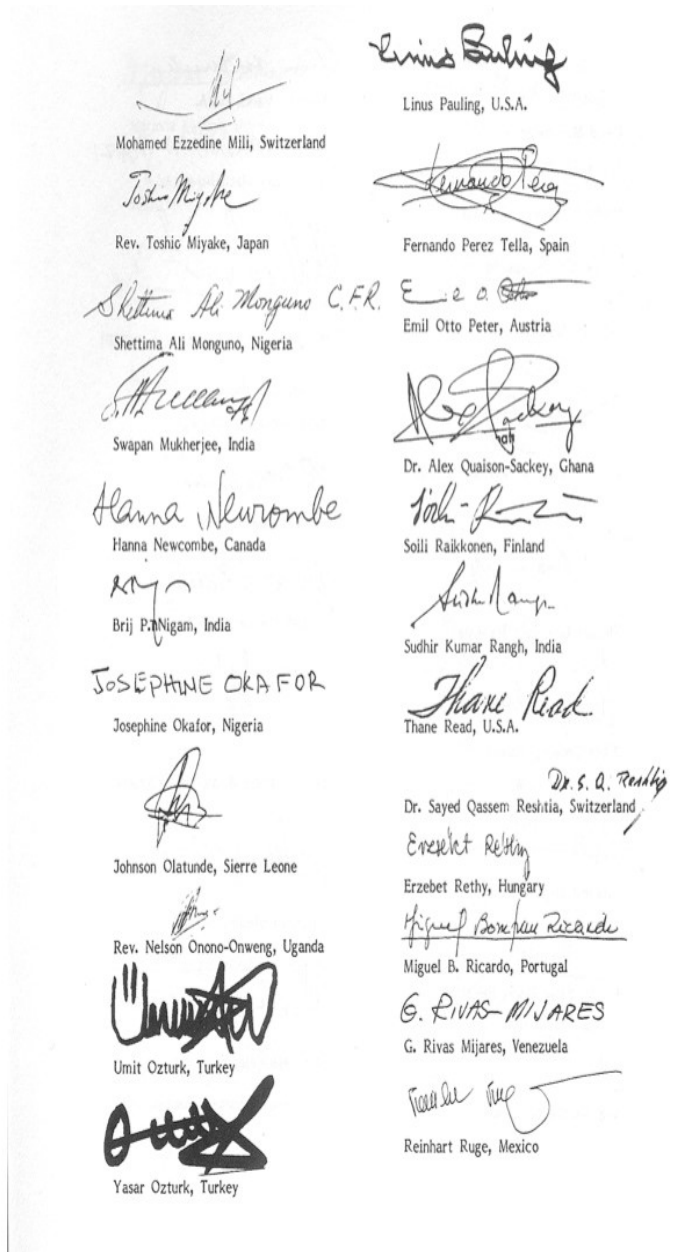 Mohamed Ezzedine Mili, Switzerland
Toshio Miyake
Rev. Toshio Miyake, Japan
Shettima Ali Monguno C.F.R.
Shettima Ali Monguno, Nigeria
Swapan Mukherjee, India
Hanna Newcombe
Hanna Newcombe, Canada
Brij P. Nigam, India
JOSEPHINE OKAFOR
Josephine Okafor, Nigeria
Johnson Olatunde, Sierre Leone
Rev. Nelson Onono-Onweng, Uganda
Umit Ozturk, Turkey
Yasar Ozturk, Turkey
Linus Pauling
Linus Pauling, U.S.A.
Fernando Pérez
Fernando Perez Tella, Spain
Emil Otto Peter, Austria
Alex Sackey
Dr. Alex Quaison-Sackey, Ghana
Soili Raikkonen, Finland
Sudhir Kumar Rangh, India
Thane Read
Thane Read, U.S.A.
Dr. S. Q. Reshtia
Dr. Sayed Qassem Reshtia, Switzerland
Erzebet Rethy, Hungary
Miguel Ricardo
Miguel B. Ricardo, Portugal
G. RIVAS-MIJARES
G. Rivas Mijares, Venezuela
Reinhart Ruge, Mexico